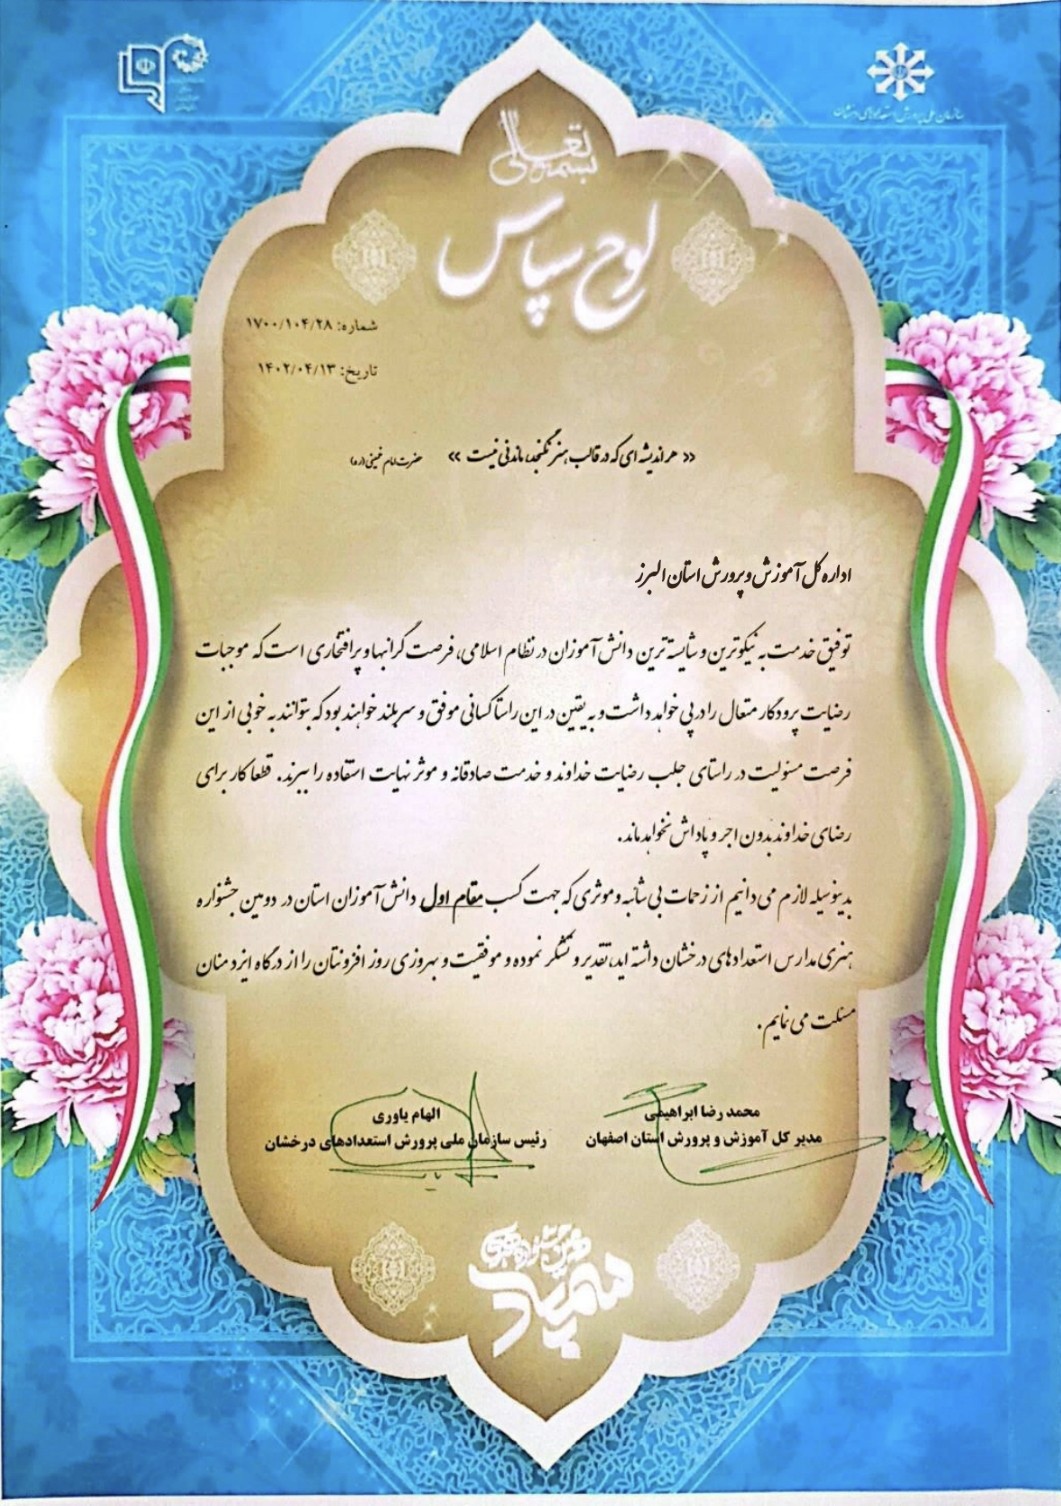 سازمان ملی پرورش استعدادهای درخشان
بسمه تعالی
لوح سپاس
شماره: ۱۷۰۰/۱۰۴/۲۸
تاریخ: ۱۴۰۲/۰۴/۱۳
« هر اندیشه ای که در قالب هنر نگنجد، ماندنی نیست » حضرت امام خمینی (ره)
اداره کل آموزش و پرورش استان البرز
توفیق خدمت به نیکوترین و شایسته ترین دانش آموزان در نظام اسلامی، فرصت گرانبها و پرافتخاری است که موجبات
رضایت پرودگار متعال را در پی خواهد داشت و به یقین در این راستا کسانی موفق و سربلند خواهند بود که بتوانند به خوبی از این
فرصت مسئولیت در راستای جلب رضایت خداوند و خدمت صادقانه و موثر نهایت استفاده را ببرند. قطعا کار برای
رضای خداوند بدون اجر و پاداش نخواهد ماند.
بدینوسیله لازم می دانیم از زحمات بی شائبه و موثری که جهت کسب مقام اول دانش آموزان استان در دومین جشنواره
هنری مدارس استعدادهای درخشان داشته اید، تقدیر و تشکر نموده و موفقیت و بهروزی روز افزونتان را از درگاه ایزد منان
مسئلت می نمایم.
محمد رضا ابراهیمی
مدیر کل آموزش و پرورش استان اصفهان
الهام یاوری
رئیس سازمان ملی پرورش استعدادهای درخشان
سمپاد